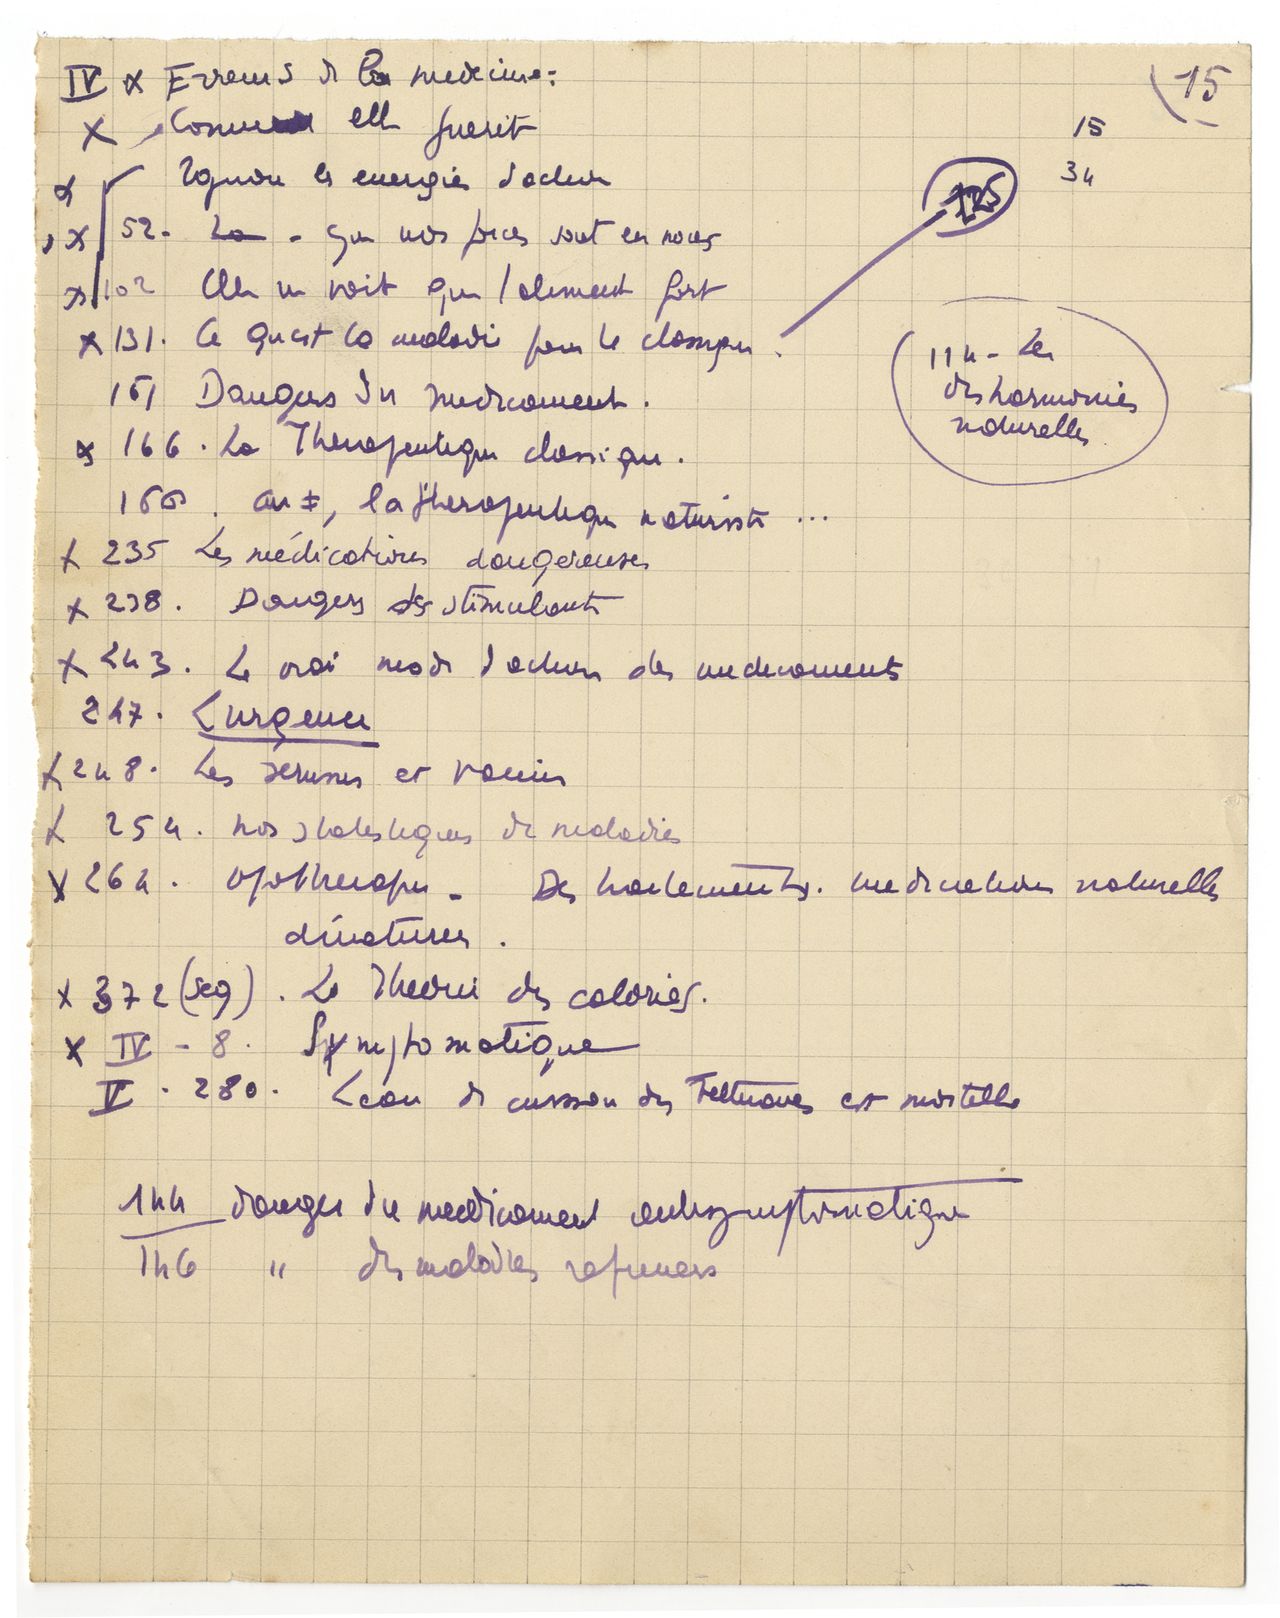 15
15
34
IV x Erreurs de la medecine:
x Comment elle guerit
x Ignore les energies d'action
x 52. La - que nos forces sont en nous
x 102 Elle ne voit que l'aliment fort
125
x 131. Ce qu'est la maladie pour le classique.
114 - Les
desharmonies
naturelles
161 Dangers du medicament.
x 166. La Therapeutique classique.
166. au ±, la therapeutique naturiste ...
x 235 Les médications dangereuses
x 238. Dangers des stimulants
x 243. Le vrai mode d'action des medicaments
247. L'urgence
x 248. Les serums et vaccins
x 254. nos statistiques de maladies
x 264. opotherapie - Des traitements. medications naturelles
dénaturées.
x 372 (seq). La Theorie des calories.
x IV - 8. Symptomatique
V. 280. L'eau de cuisson des est mortelle
144 danger du medicament antisymptomatique
146 " des maladies